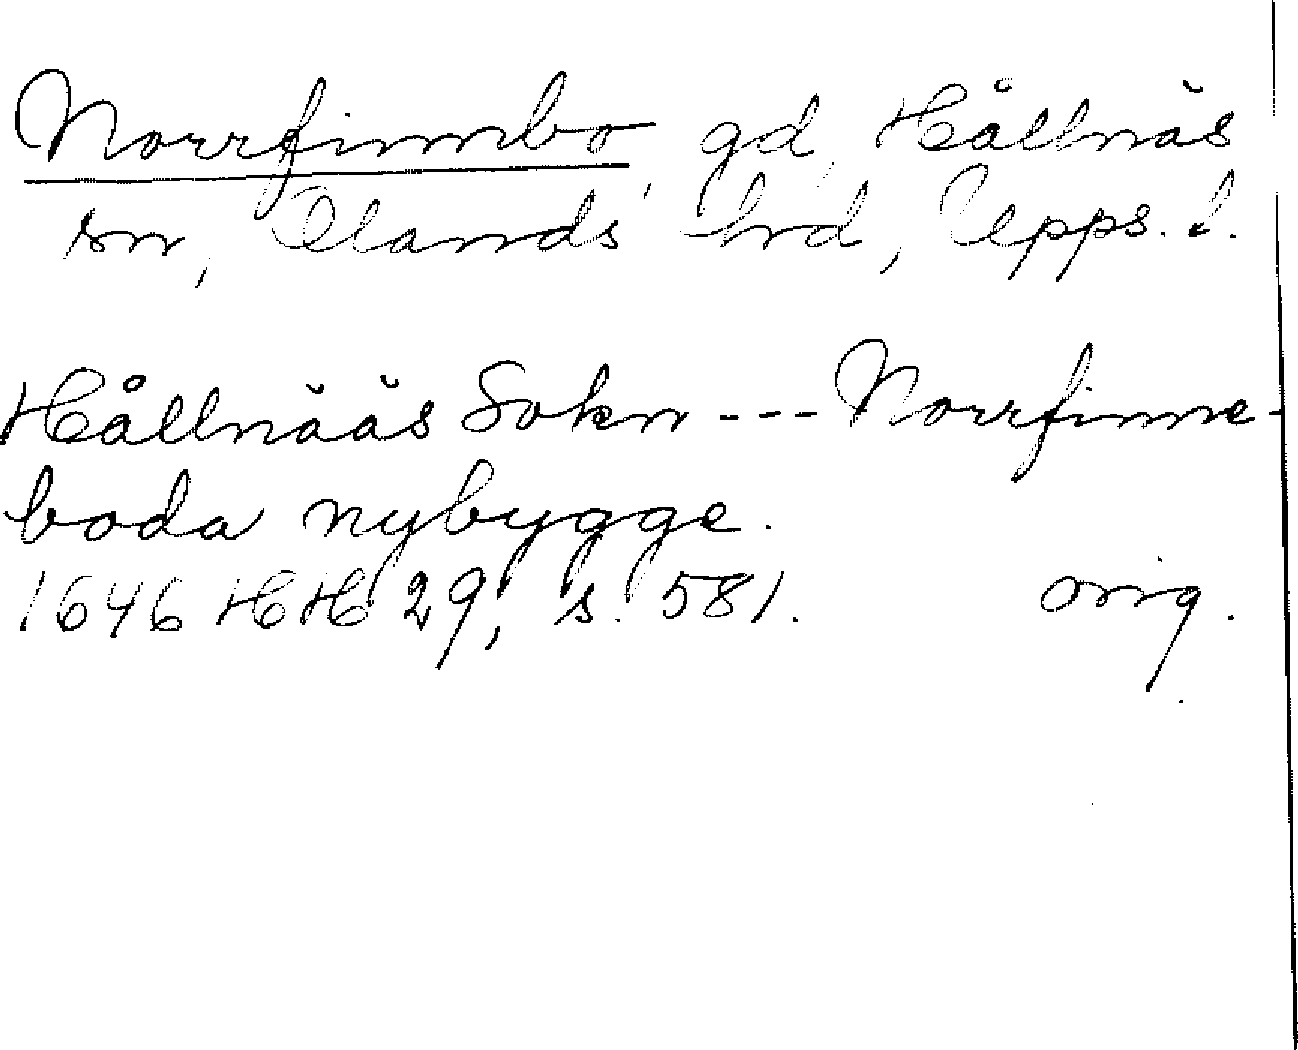 Norrfinnbo gd, Hållnäs
sn, Olands hrd, Upps. l.
Hållnääs Sokn --- Norrfinne-
boda nybygge.
1646 HH 29, s. 581. orig.